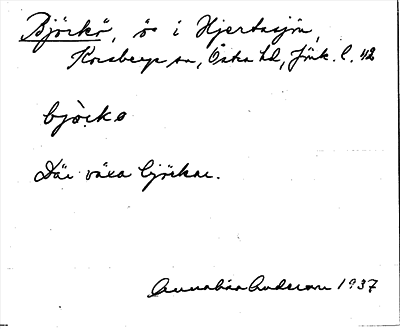 Björkö, ö i Hjertasjön,
Korsberga sn, Östra hd, Jönk. l. 42
bjò̤rkø
Där växa björkar.
Annabisa Anderson 1937